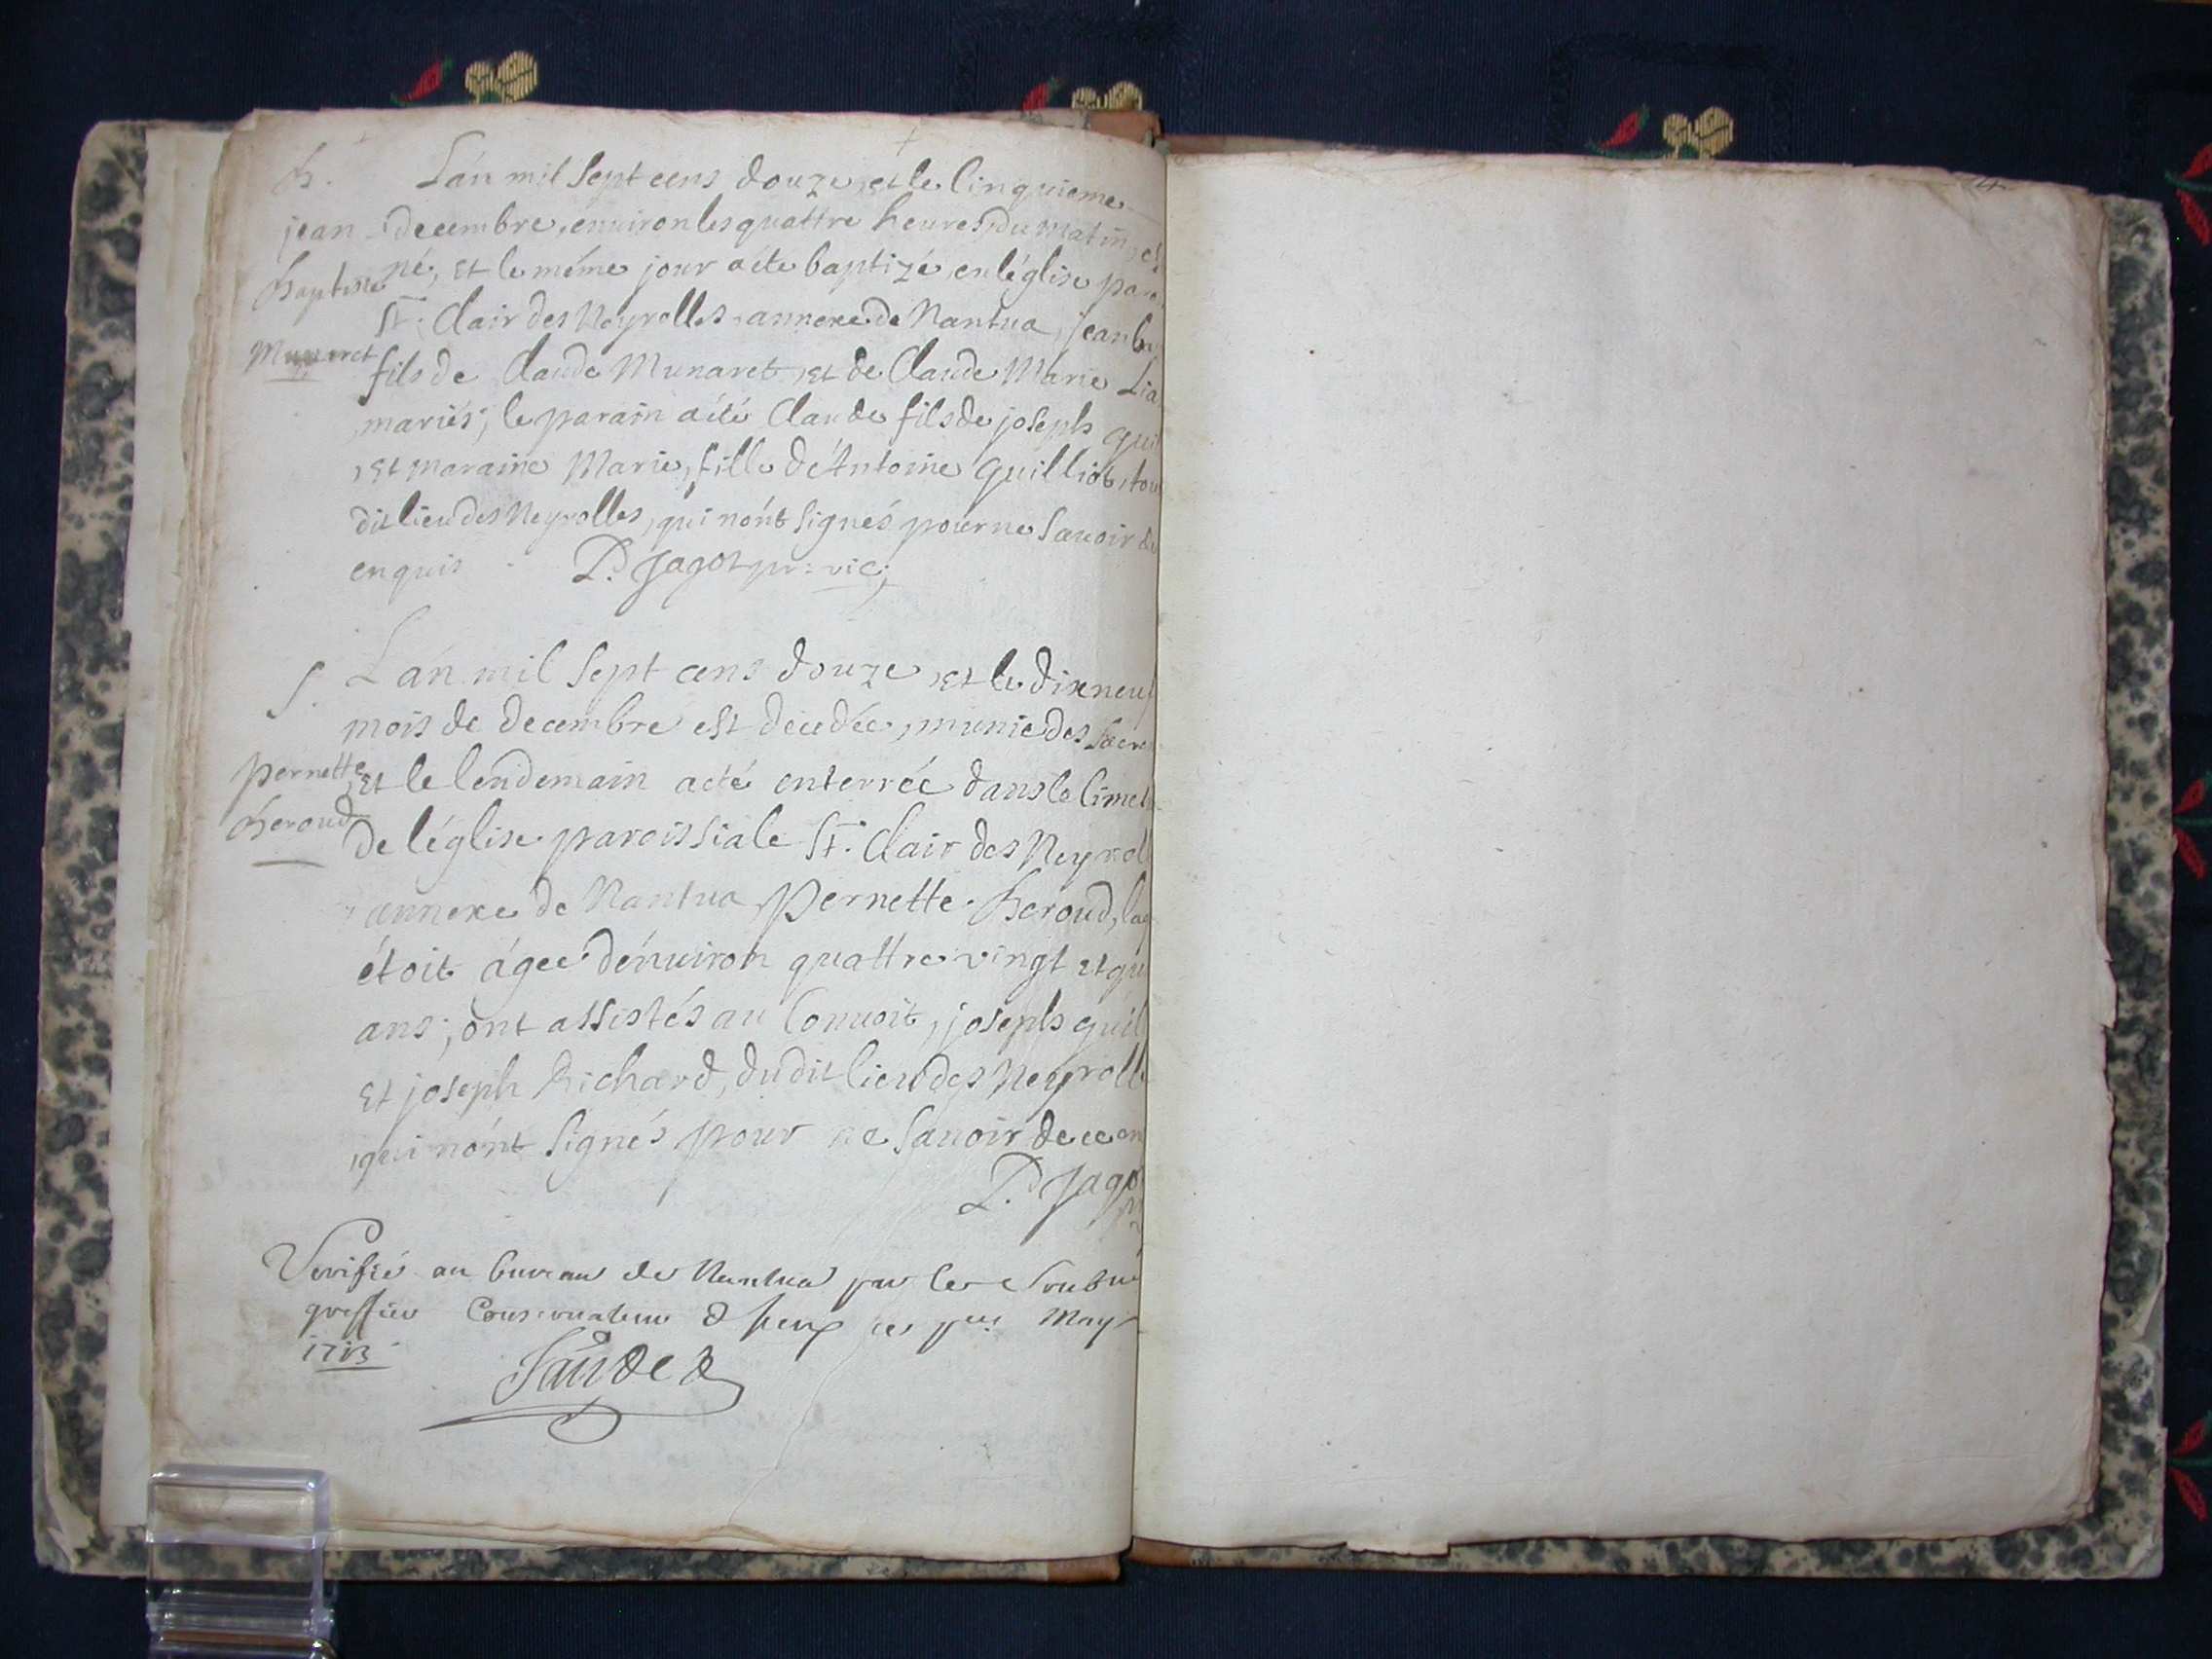 B.
L'an mil sept cens douze, et le cinquieme
jean
decembre, environ les quattre heures du matin, est
baptiste
né, et le méme jour a éte baptizé, en l'église paro
St. Clair des Neyrolles annexe de Nantua, jean ba
Munaret
fils de Claude Munaret, et de Claude Marie Lia
mariés; le parain a été Claude fils de joseph guil
, et maraine Marie, fille d'Antoine guilliot, tou
dit lieu des Neyrolles, qui n'ont signés pour ne savoir de
enquis. P. Jagot pr: vic;
S.
L'an mil sept cens douze, et le dixneuf
mois de decembre est décedée, munie des sacre
pernette
et le lendemain a eté enterrée dans le cimet
beroud
de l'église paroissiale St. Clair des Neyroll
annexe de Nantua pernette beroud, laq
étoit ágee d'énuiron quattre vingt et qu
ans; ont assistés au conuoit, joseph guil
et joseph Richard, du dit lieu des Neyrolle
, qui n'ont signés pour ne sauoir de ce en
P. Jago
Verifié au bureau de Nantua par le
greffier Conseruateur May
1713